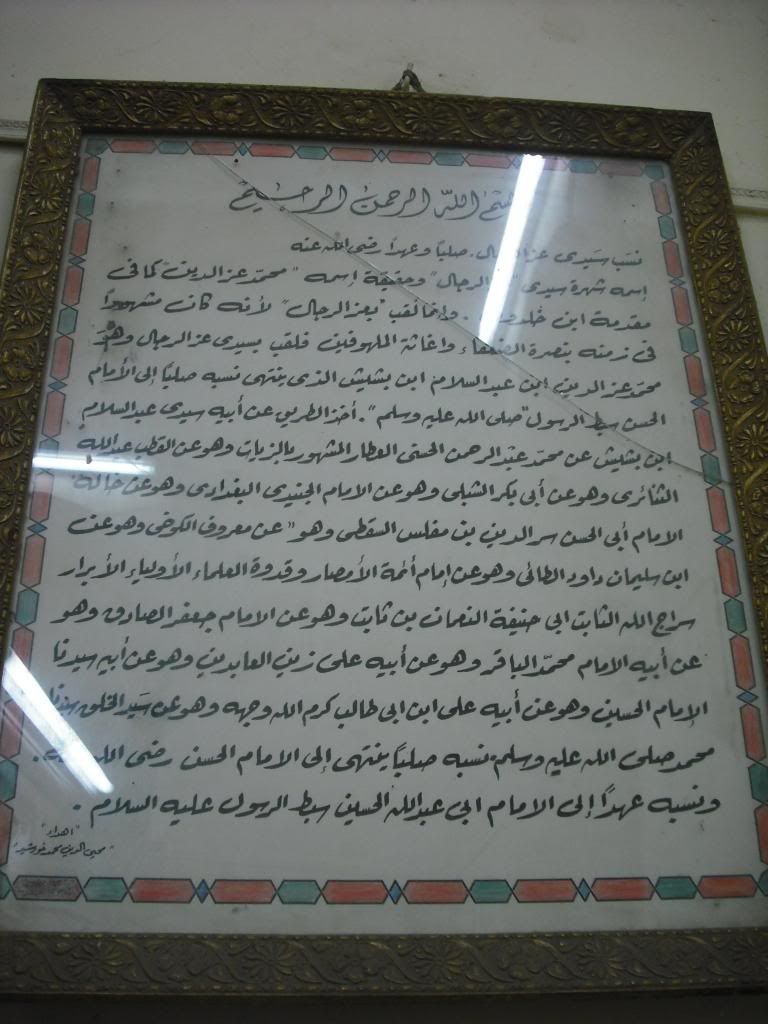 بسم الله الرحمن الرحيم
نسب سيدى عز الرجال. صلباً وعهداً رضى الله عنه
إسمه شهرة سيدى "عز الرجال" وحقيقة إسمه "محمد عز الدين" كما فى
مقدمة ابن خلدون. وإنما لقب "بعز الرجال" لأنه كان مشهوداً
فى زمنه بنصرة الضعفاء واغاثة الملهوفين فلقب بسيدى عز الرجال وهو
محمد عز الدين ابن عبد السلام ابن بشيش الذى ينتهى نسبه صلباً إلى الأمام
الحسن سبط الرسول "صلى الله عليه وسلم". أخذ الطريق عن أبيه سيدى عبد السلام
ابن بشيش عن محمد عبد الرحمن الحسنى العطار المشهور بالزيات وهو عن القطب عبد الله
التنائرى وهو عن أبى بكر الشبلى وهو عن الامام الجنيدى البغدادى وهو عن خاله
الامام أبى الحسن سر الدين بن مفلس السقطى وهو" عن معروف الكرخى وهو عن
ابن سليمان داود الطائى وهو عن إمام أئمة الأمصار وقدوة العلماء الأولياء الأبرار
سراج الله الثابت ابى حنيفة النعمان بن ثابت وهو عن الامام جعفر الصادق وهو
عن أبيه الامام محمد الباقر وهو عن أبيه على زين العابدين وهو عن أبيه سيدنا
الإمام الحسين وهو عن أبيه على ابن ابى طالب كرم الله وجهه وهو عن سيد الخلق سيدنا
محمد صلى الله عليه وسلم. نسبه صلباً ينتهى إلى الامام الحسن رضى الله عنه.
ونسبه عهداً إلى الامام ابى عبدالله الحسين سبط الرسول عليه السلام.
"اهداء"
"محيى الدين محمد خورشيد"